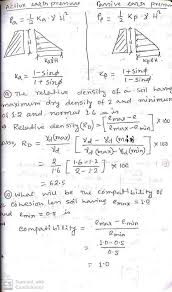 Active earth pressure
Passive earth pressure
Pa = 1/2 Ka γ H²
Pp = 1/2 Kp γ H²
Ka = 1-sinϕ / 1+sinϕ
Kp = 1+sinϕ / 1-sinϕ
The relative density of a soil having
maximum dry density of 2 and minimum
of 1.2 and normal 1.6 is
Relative density (RD) = [emax-e / emax-emin] × 100
RD = γd(max) / γd [γd - γd(min) / γd(max) - γd(min)] × 100
= 2 / 1.6 [1.6-1.2 / 2-1.2] × 100
= 62.5
What will be the compatibility of
a cohesion less soil having emax = 1.0
and emin = 0.5 is
compatibility = emax - emin / emin
= 1.0-0.5 / 0.5
= 1.0
Scanned with
CamScanner